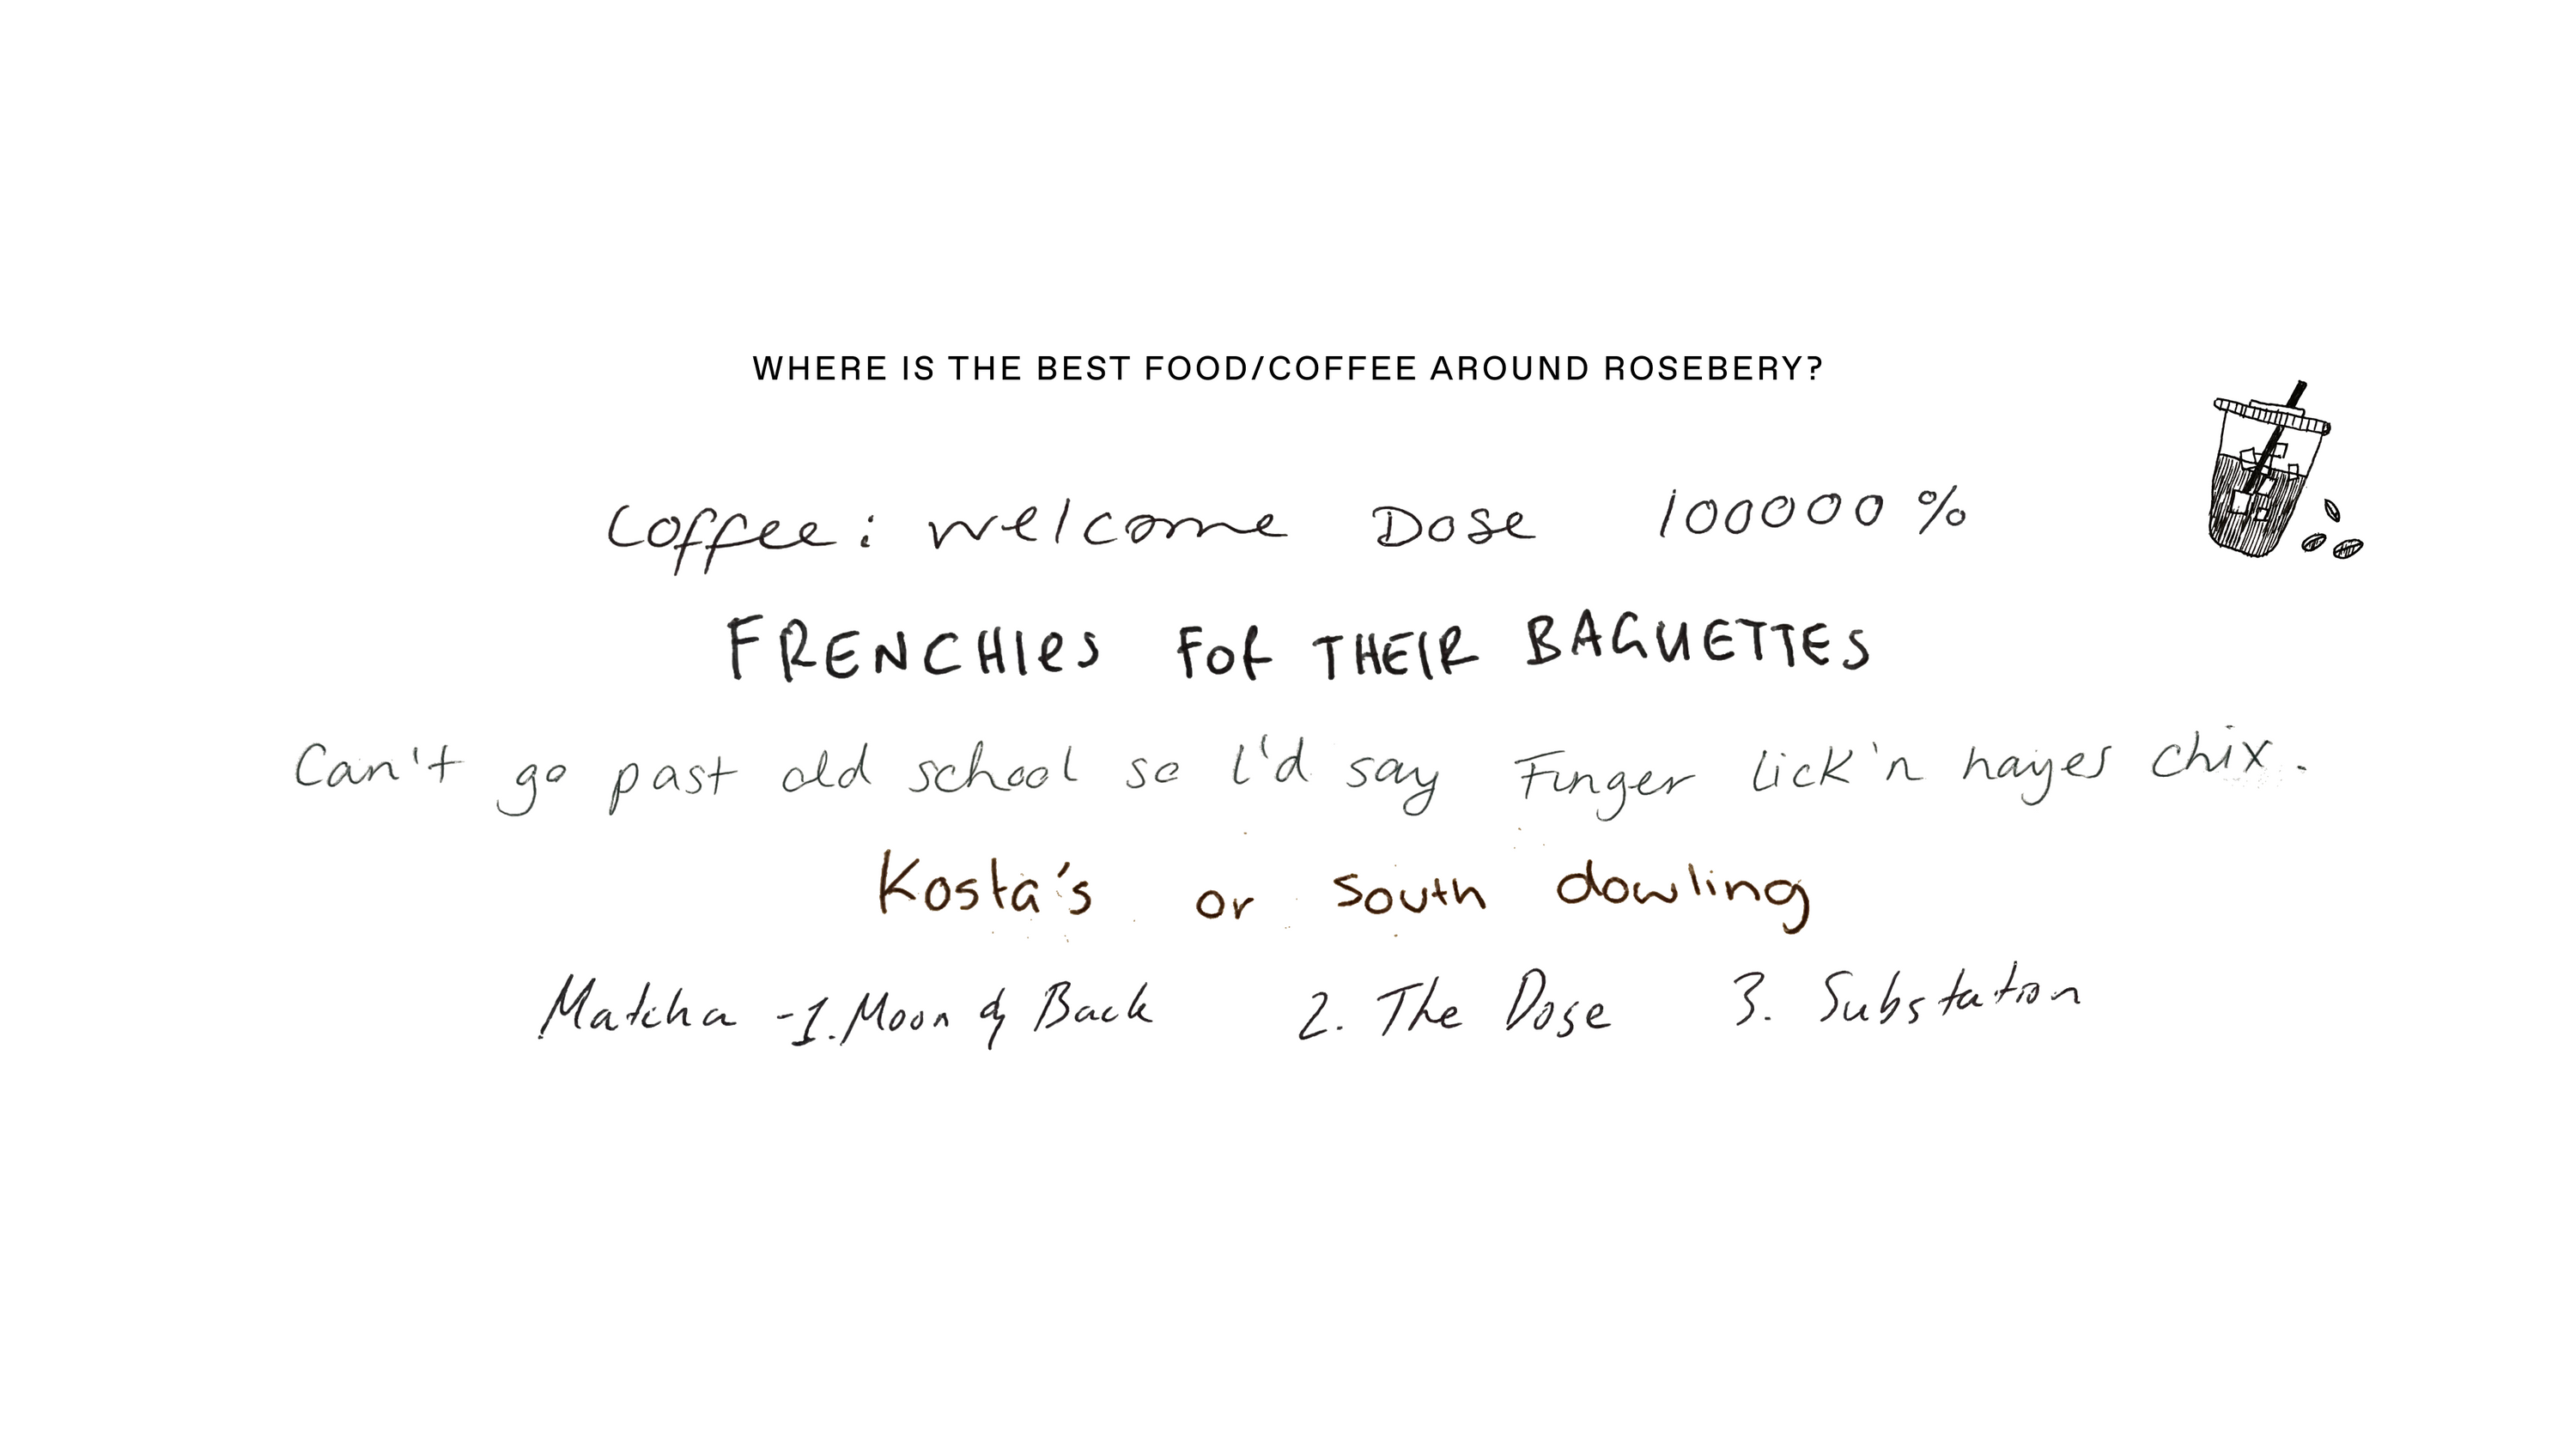 WHERE IS THE BEST FOOD/COFFEE AROUND ROSEBERY?
Coffee: Welcome Dose 100000%
FRENCHIES FOR THEIR BAGUETTES
Can't go past old school so I'd say Finger lick'n hayes chix.
Kosta's or South dowling
Matcha -1. Moon & Back 2. The Dose 3. Substation